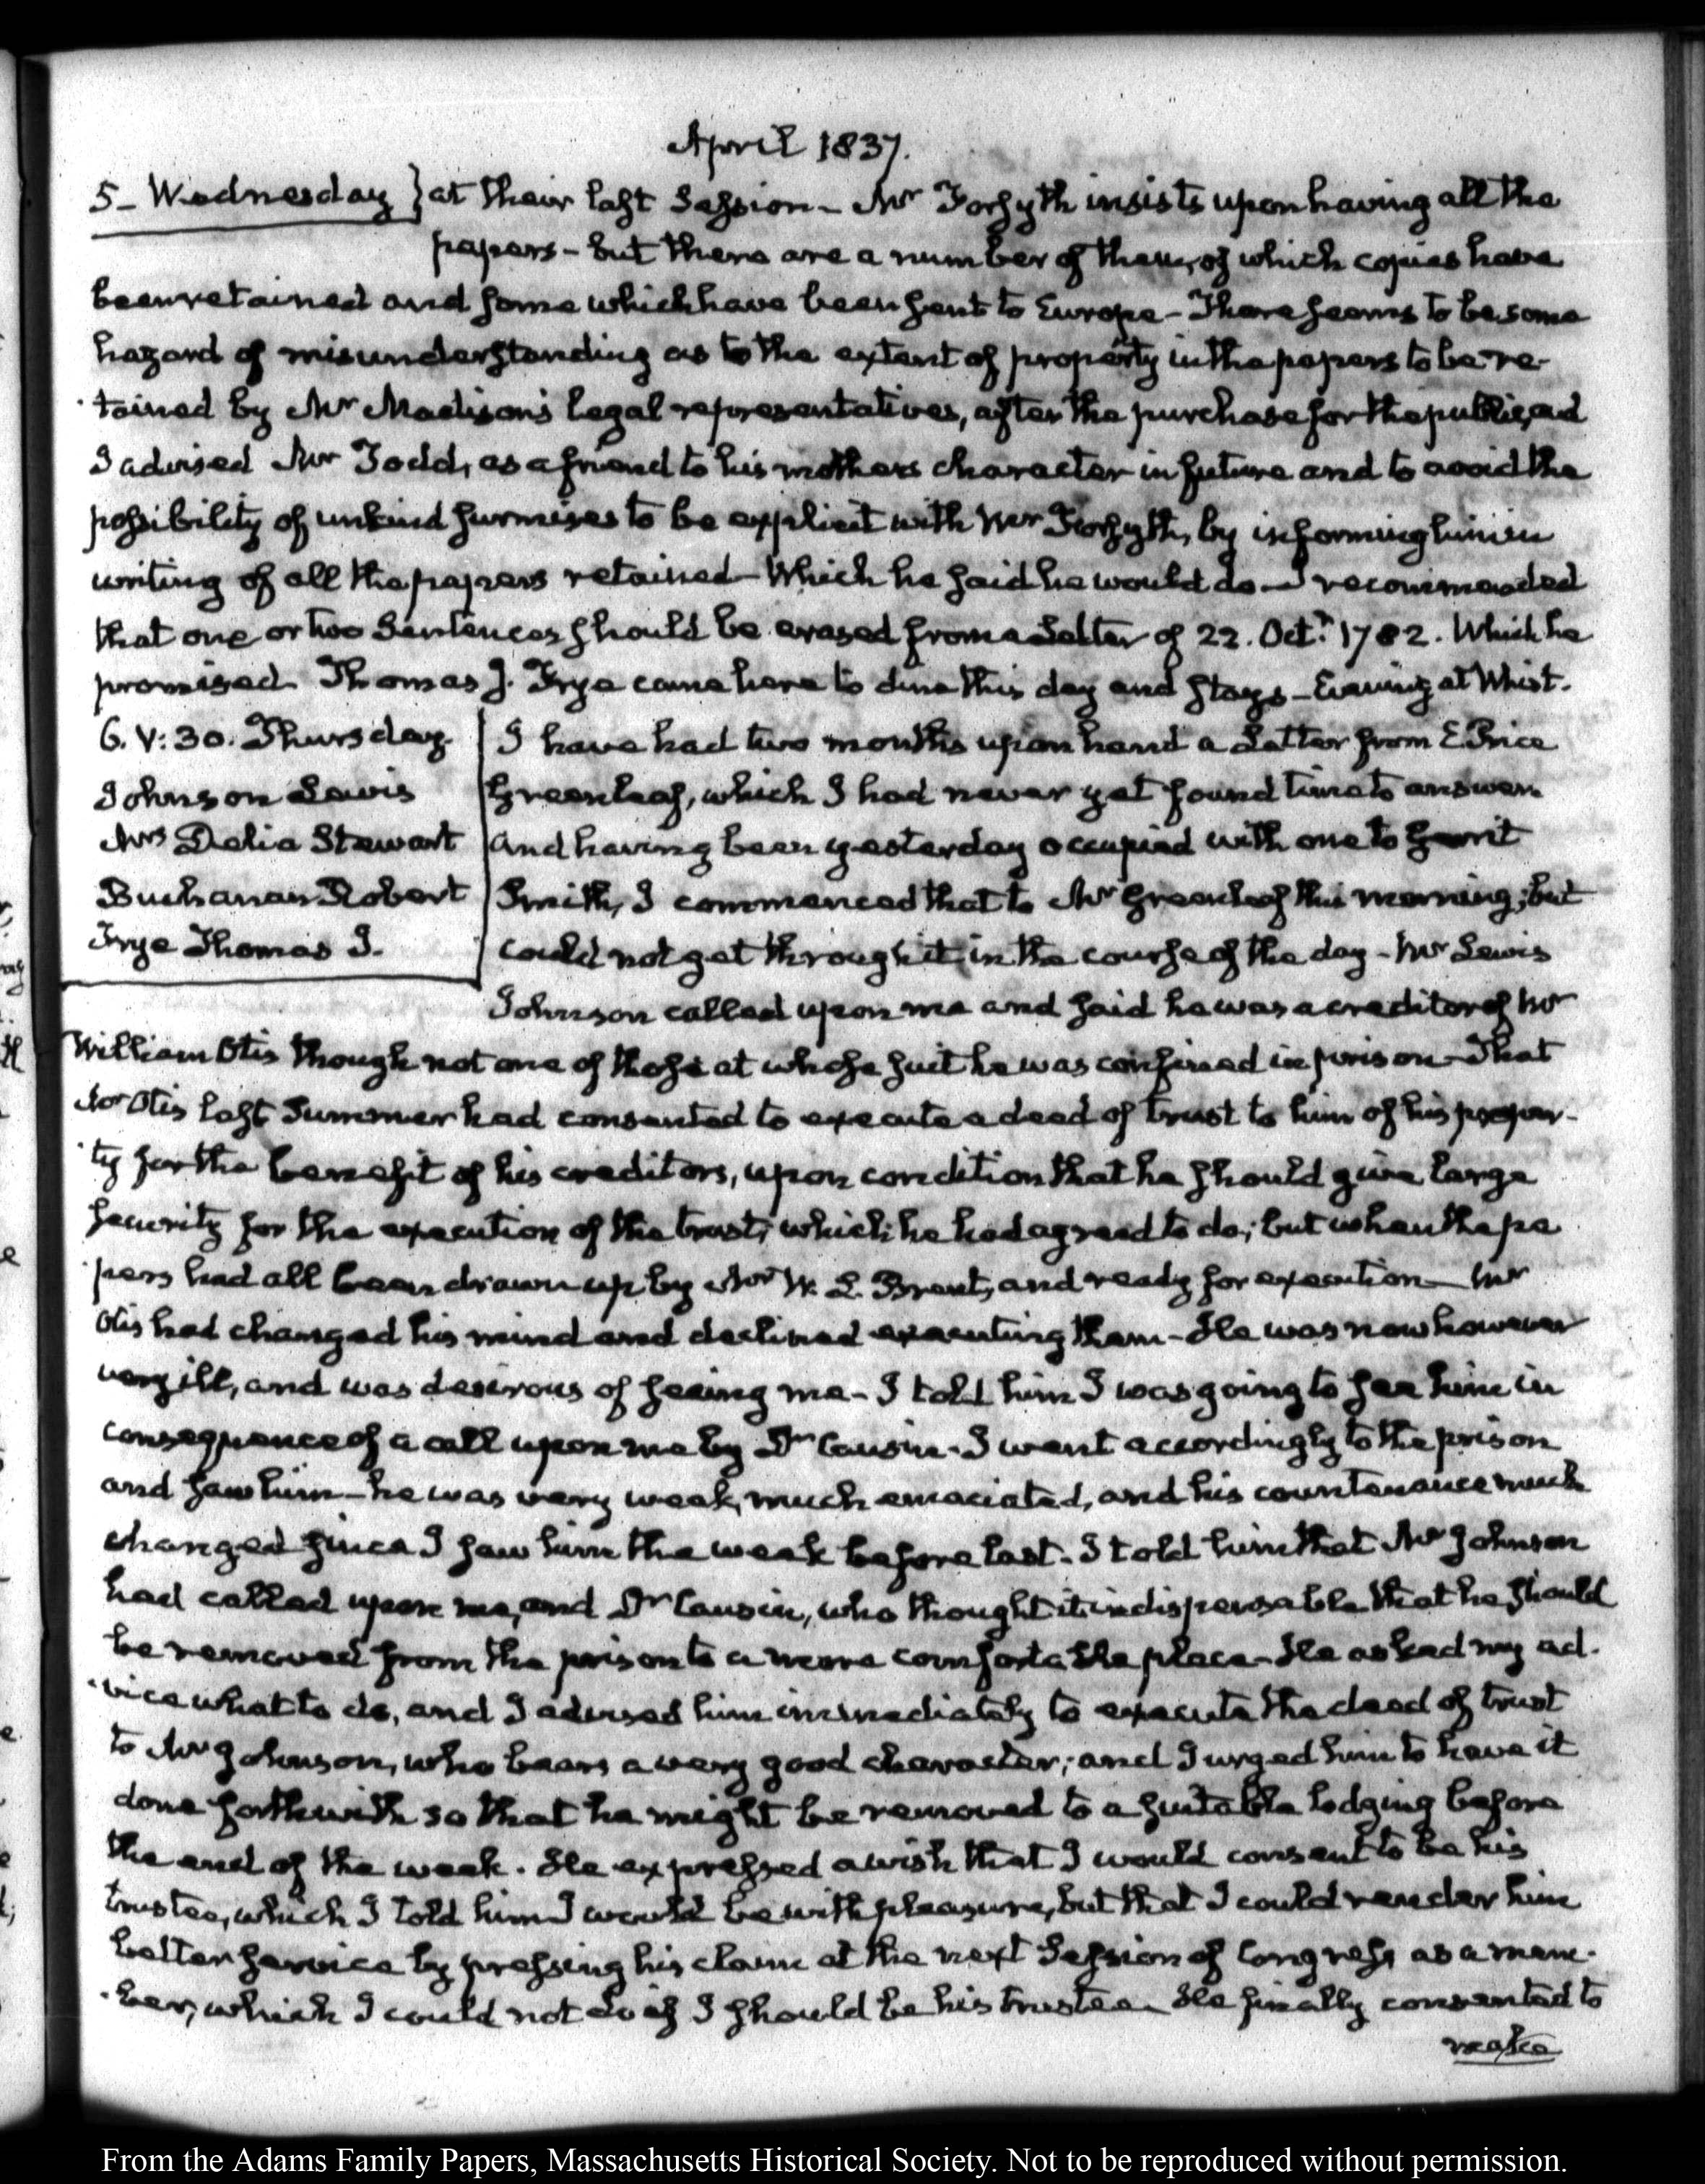 April 1837.
5 - Wednesday } at their last Session - Mr Forsyth insists upon having all the
papers - but there are a number of them, of which copies have
been retained and some which have been sent to Europe - There seems to be some
hazard of misunderstanding as to the extent of property in the papers to be re-
tained by Mr Madison's legal representatives, after the purchase for the public, and
I advised Mr Todd, as a friend to his mothers character in future and to avoid the
possibility of unkind surmises to be explicit with Mr Forsyth, by informing him in
writing of all the papers retained - Which he said he would do - I recommended
that one or two Sentences should be erased from a Letter of 22. Octr. 1782. Which he
promised. Thomas J. Frye came here to dine this day and stays - Evening at Whist.
6. V: 30. Thursday.
Johnson Lewis
Mrs Delia Stewart
Buchanan Robert
Frye Thomas J.
I have had two months upon hand a Letter from E Price
Greenleaf, which I had never yet found time to answer.
And having been yesterday occupied with one to Gerrit
Smith, I commenced that to Mr Greenleaf this morning; but
could not get through it in the course of the day - Mr Lewis
Johnson called upon me and said he was a creditor of Mr
William Otis though not one of those at whose suit he was confined in prison - That
Mr Otis last Summer had consented to execute a deed of trust to him of his proper-
ty for the benefit of his creditors, upon condition that he should give large
security for the execution of the trust; which he had agreed to do; but when the pa
pers had all been drawn up by Mr W. L. Brent, and ready for execution - Mr
Otis had changed his mind and declined executing them - He was now however
very ill, and was desirous of seeing me - I told him I was going to see him in
consequence of a call upon me by Dr Causin - I went accordingly to the prison
and saw him - he was very weak, much emaciated, and his countenance much
changed since I saw him the week before last - I told him that Mr Johnson
had called upon me, and Dr Causin, who thought it indispensable that he should
be removed from the prison to a more comfortable place - He asked my ad-
vice what to do, and I advised him immediately to execute the deed of trust
to Mr Johnson, who bears a very good character; and I urged him to have it
done forthwith so that he might be removed to a suitable lodging before
the end of the week. He expressed a wish that I would consent to be his
trustee, which I told him I would be with pleasure, but that I could render him
better service by pressing his claim at the next Session of Congress as a mem-
ber, which I could not do if I should be his trustee - He finally consented to
make
From the Adams Family Papers, Massachusetts Historical Society. Not to be reproduced without permission.